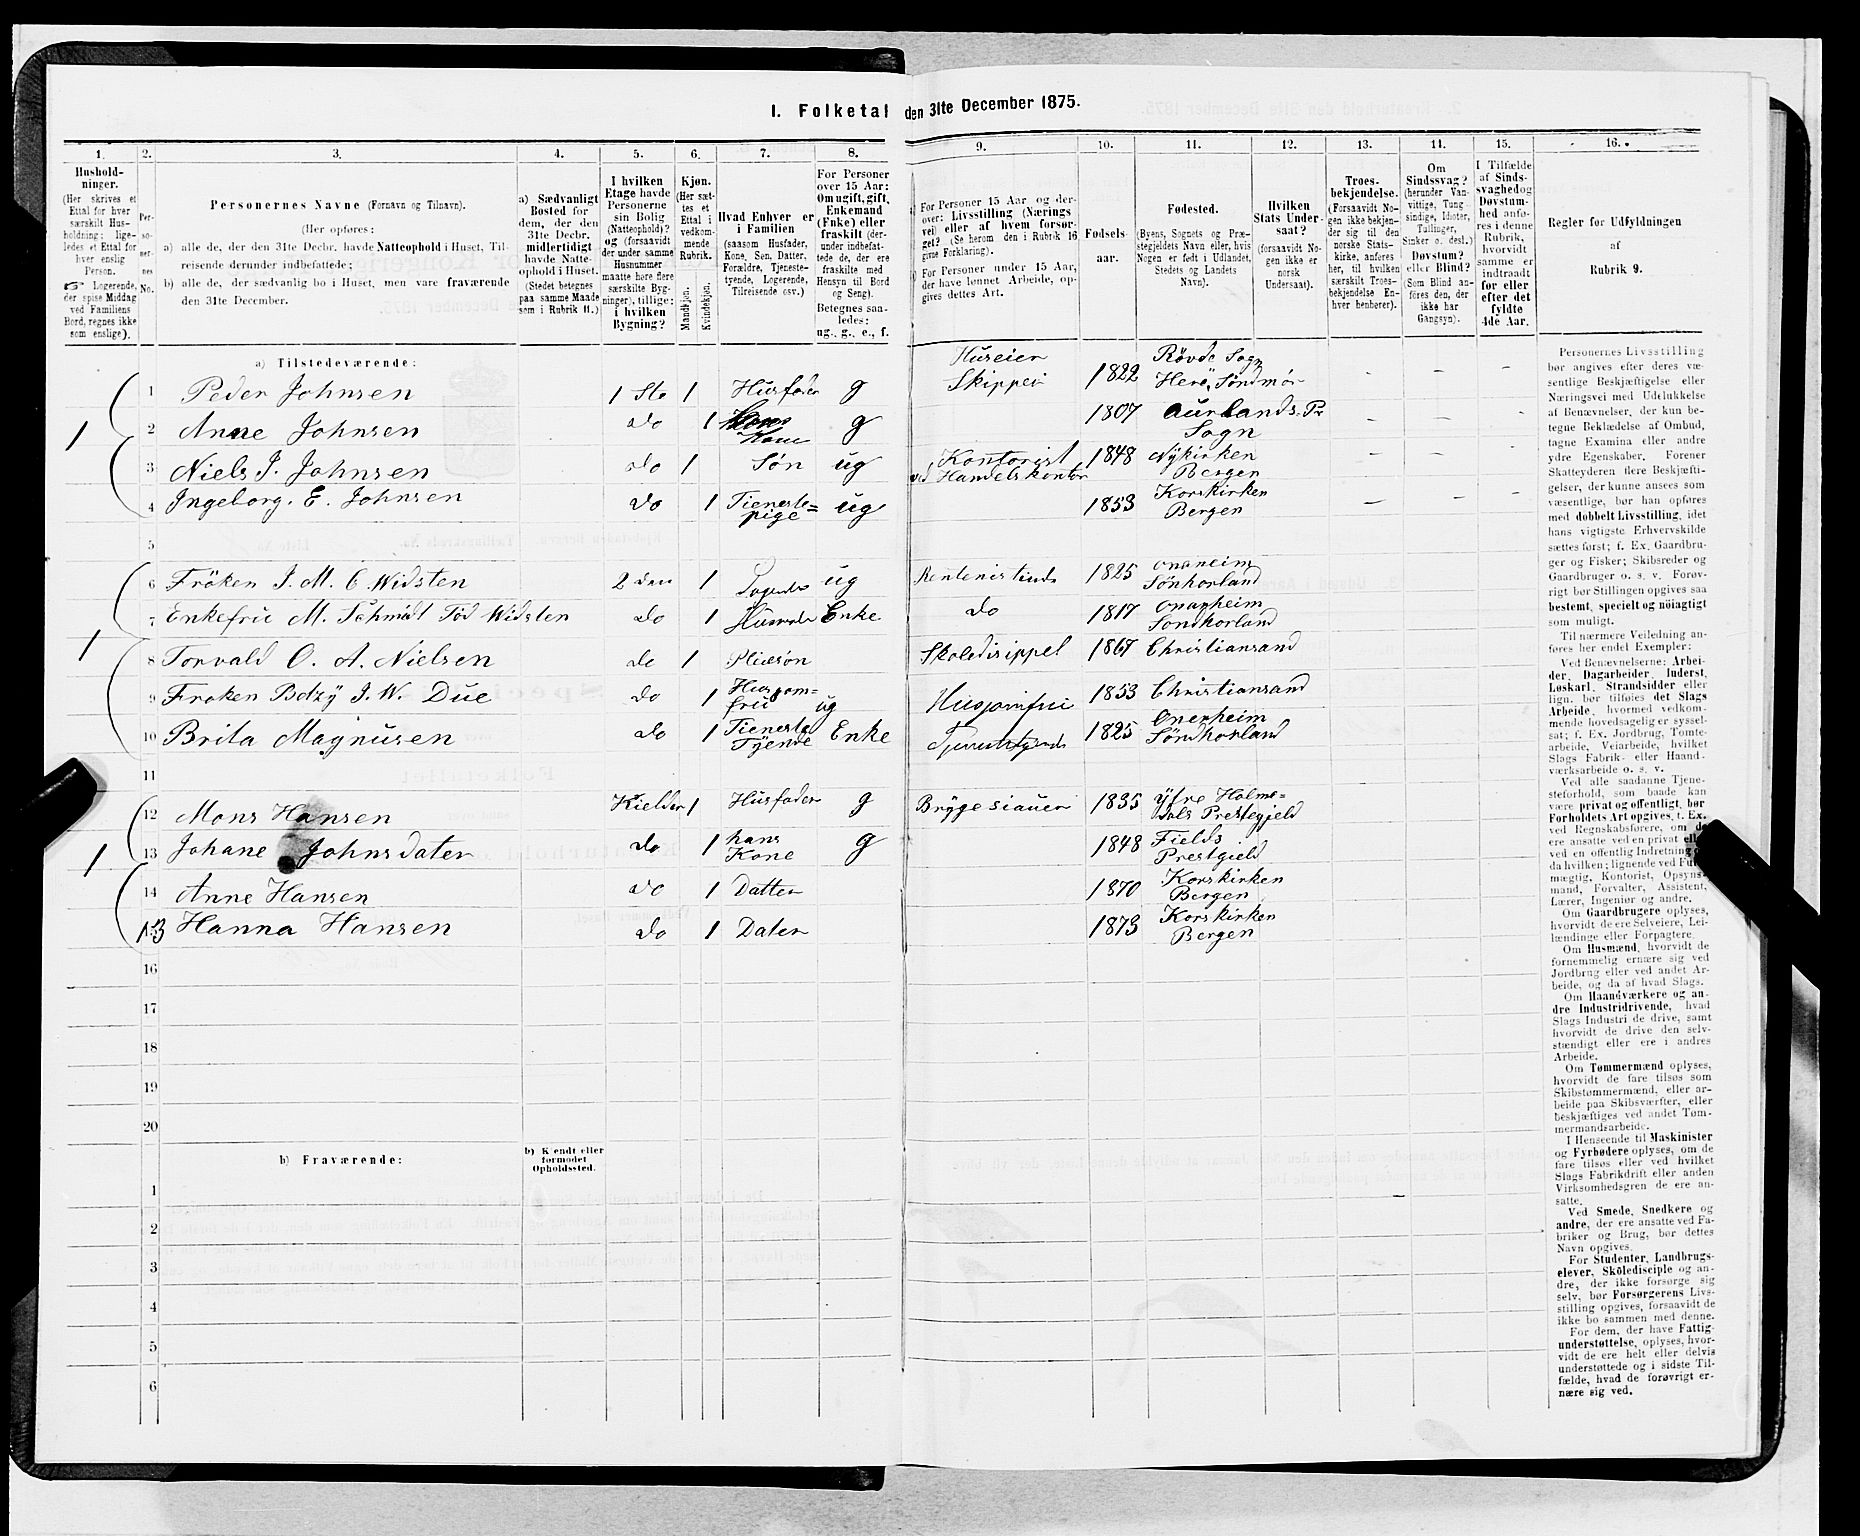 1. Folketal den 31te December 1875.
1. 2. 3. 4. 5. 6. 7. 8. 9. 10. 11. 12. 13. 11. 15. 16.
Hushold-
ninger.
(Her skrives et
Ettal for hver
særskilt Hus-
holdning; lige-
ledes et Ettal for
hver enslig
Person.
☞ Logerende,
der spise Middag
ved Familiens
Bord, regnes ikke
som enslige).
Per-
so-
ner-
nes
No.
Personernes Navne (Fornavn og Tilnavn).
(Her opføres:
a) alle de, der den 31te Decbr. havde Natteophold i Huset, Til-
reisende derunder indbefattede;
b) alle de, der sædvanlig bo i Huset, men vare fraværende
den 31te December.
a) Sædvanligt
Bosted for
dem, der den
31te Decbr.
midlertidigt
havde Natte-
ophold i Huset.
(Stedet betegnes
paa samme Maade
som i Rubrik 11.)
I hvilken
Etage havde
Personerne
sin Bolig
(Natteophold)?
og (forsaavidt
der under samme
Husnummer
maatte høre flere
særskilte Byg-
ninger), tillige:
i hvilken
Bygning?
Kjøn.
(Her sæt-
tes et
Ettal i
vedkom-
mende
Rubrik.
Mandkjøn.
Kvindekjøn.
Hvad Enhver er
i Familien
(saasom Husfader,
Kone, Søn, Datter,
Forældre, Tjeneste-
tyende, Logerende,
Tilreisende osv.)
For Personer
over 15 Aar:
Om ugift, gift,
Enkemand
(Enke) eller
fraskilt (der-
under indbefat-
tede de, der ere
fraskilte med
Hensyn til Bord
og Seng).
Betegnes saa-
ledes:
ug., g., e., f.
For Personer 15 Aar og der-
over: Livsstilling (Nærings
vei) eller af hvem forsør-
get? (Se herom den i Rubrik 16
givne Forklaring).
For Personer under 15 Aar,
der have lønnet Arbeide, op-
gives dettes Art.
Fødsels-
aar.
Fødested.
(Byens, Sognets og Præ-
stegjeldets Navn eller, hvis
Nogen er født i Udlandet,
Stedets og Landets
Navn).
Hvilken
Stats Under-
saat?
(forsaavidt No-
gen ikke er
norsk
Undersaat).
Troes-
bekjendelse.
(Forsaavidt No-
gen ikke bekjen-
der sig til den
norske Stats-
kirke, anføres
her, til hvilken
særskilt Troes-
bekjendelse En-
hver henhører).
Om
Sindssvag?
(herunder Van-
vittige, Tung-
sindige, Idioter,
Tullinger,
Sinker o. desl.)
Døvstum?
eller Blind?
(Som Blind an-
føres den, der
ikke har
Gangsyn).
I Tilfælde
af Sinds-
svaghed og
Døvstum-
hed anfø-
res i denne
Rubrik,
hvorvidt
samme er
indtraadt
før eller
efter det
fyldte
4de Aar.
Regler for Udfyldningen
af
Rubrik 9.
a) Tilstedeværende:
1
1 Peder Johnsen 1 Sto 1 Husfader g Huseier Skipper 1822 Røvde Sogn Herø, Søndmør - - -
2 Anne Johnsen do 1 Kone g 1807 Aurlands Pr Sogn - - -
3 Niels J. Johnsen do 1 Søn ug Kontorist ved Handelskontor 1848 Nykirken Bergen - - -
4 Ingeborg. E. Johnsen do 1 Tieneste= pige ug 1853 Korskirken Bergen - - -
5
1
6 Fröken J. M. C. Widsten 2 den 1 ug 1825
7 Enkefru M. Schmidt Fød Widsten do 1 Enke do 1817
8 Torvald O. A. Nielsen do 1 Pleiesøn Skoledisippel 1867 Christiansand
9 Froken Botzy J. W. Due do 1 Husjom= fru ug Husjomfru 1853 Christiansand
10 Brita Magnusen do 1 Tieneste Tyende Enke 1825
11
1
12 Mons Hansen Kielder 1 Husfader g Bryggesiauer 1835 Ytre Holme= dals Prestegjeld
13 Johane Johnsdater do 1 hans Kone g 1848 Fields Prestgield
14 Anne Hansen do 1 Datter 1870 Korskirken Bergen
13 Hanna Hansen do 1 Dater 1873 Korskirken Bergen
16
17
18
19
20
b) Fraværende:
b) Kjendt eller
formodet
Opholdssted.
1
2
3
4
5
6
Personernes Livsstilling
bør angives efter deres væ-
sentlige Beskjæftigelse eller
Næringsvei med Udelukkelse
af Benævnelser, der kun be-
tegne Beklædelse af Ombud,
tagne Examina eller andre
ydre Egenskaber. Forener
Skatteyderen flere Beskjæfti-
gelser, der kunne ansees som
væsentlige, bør han opføres
med dobbelt Livsstilling, idet
hans vigtigste Erhvervskilde
sættes først; f. Ex. Gaardbru-
ger og Fisker; Skibsreder og
Gaardbruger o. s. v. Forøv-
rigt bør Stillingen opgives saa
bestemt, specielt og nöiagtigt
som muligt.
Til nærmere Veiledning an-
føres her endel Exempler:
Ved Benævnelserne: Arbei-
der, Dagarbeider, Inderst,
Løskarl, Strandsidder eller
lign. bør tilføies det Slags
Arbeide, hvormed vedkom-
mende hovedsagelig er syssel-
sat; f. Ex. Jordbrug, Tomte-
arbeide, Veiarbeide, hvilket
Slags Fabrik- eller Haand-
værksarbeide o. s. v.
Ved alle saadanne Tjene-
steforhold, som baade kan
være privat og offentligt, bør
Forholdets Art opgives, t. Ex.
ved Regnskabsførere, om de
ere ansatte ved en privat eller
ved en offentlig Indretning og
da hvilken; lignende ved Fuld-
mægtig, Kontorist, Opsyns-
mand, Forvalter, Assistent,
Lærer, Ingeniør og andre.
Om Gaardbrugere oplyses,
hvorvidt de ere Selveiere, Lei-
lændinge eller Forpagtere.
Om Husmænd, hvorvidt de
fornemmelig ernære sig ved
Jordbrug eller ved andet Ar-
beide, og da af hvad Slags.
Om Haandværkere og an-
dre Industridrivende, hvad
Slags Industri de drive, samt
hvorvidt de drive den selv-
stændigt eller ere i andres
Arbeide.
Om Tømmermænd oplyses,
hvorvidt de fare tilsøs som
Skibstømmermænd, eller ar-
beide paa Skibsværfter, eller
beskjæftiges ved andet Tøm-
mermandsarbeide.
I Henseende til Maskinister
og Fyrbødere oplyses, om de
fare tilsøs eller ved hvilket
Slags Fabrikdrift eller anden
Virksomhedsgren de ere an-
satte.
Ved Smede, Snedkere og
andre, der ere ansatte ved Fa-
briker og Brug, bør dettes
Navn opgives.
For Studenter, Landbrugs-
elever, Skoledisciple og an-
dre, der ikke forsørge sig
selv, bør Forsørgerens Livs-
stilling opgives, forsaavidt de
ikke bo sammen med denne.
For dem, der have Fattig-
understøttelse, oplyses, hvor-
vidt de ere helt eller delvis
understøttede og i sidste Til-
fælde, hvad de forøvrigt er-
nære sig ved.